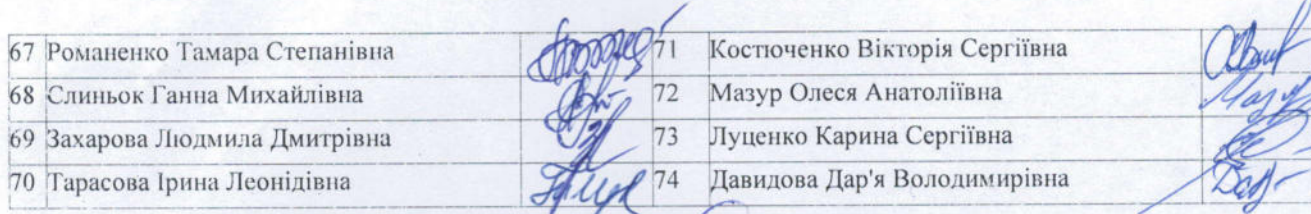 67 Романенко Тамара Степанівна 71 Костюченко Вікторія Сергіївна
68 Слиньок Ганна Михайлівна 72 Мазур Олеся Анатоліївна
69 Захарова Людмила Дмитрівна 73 Луценко Карина Сергіївна
70 Тарасова Ірина Леонідівна 74 Давидова Дар'я Володимирівна